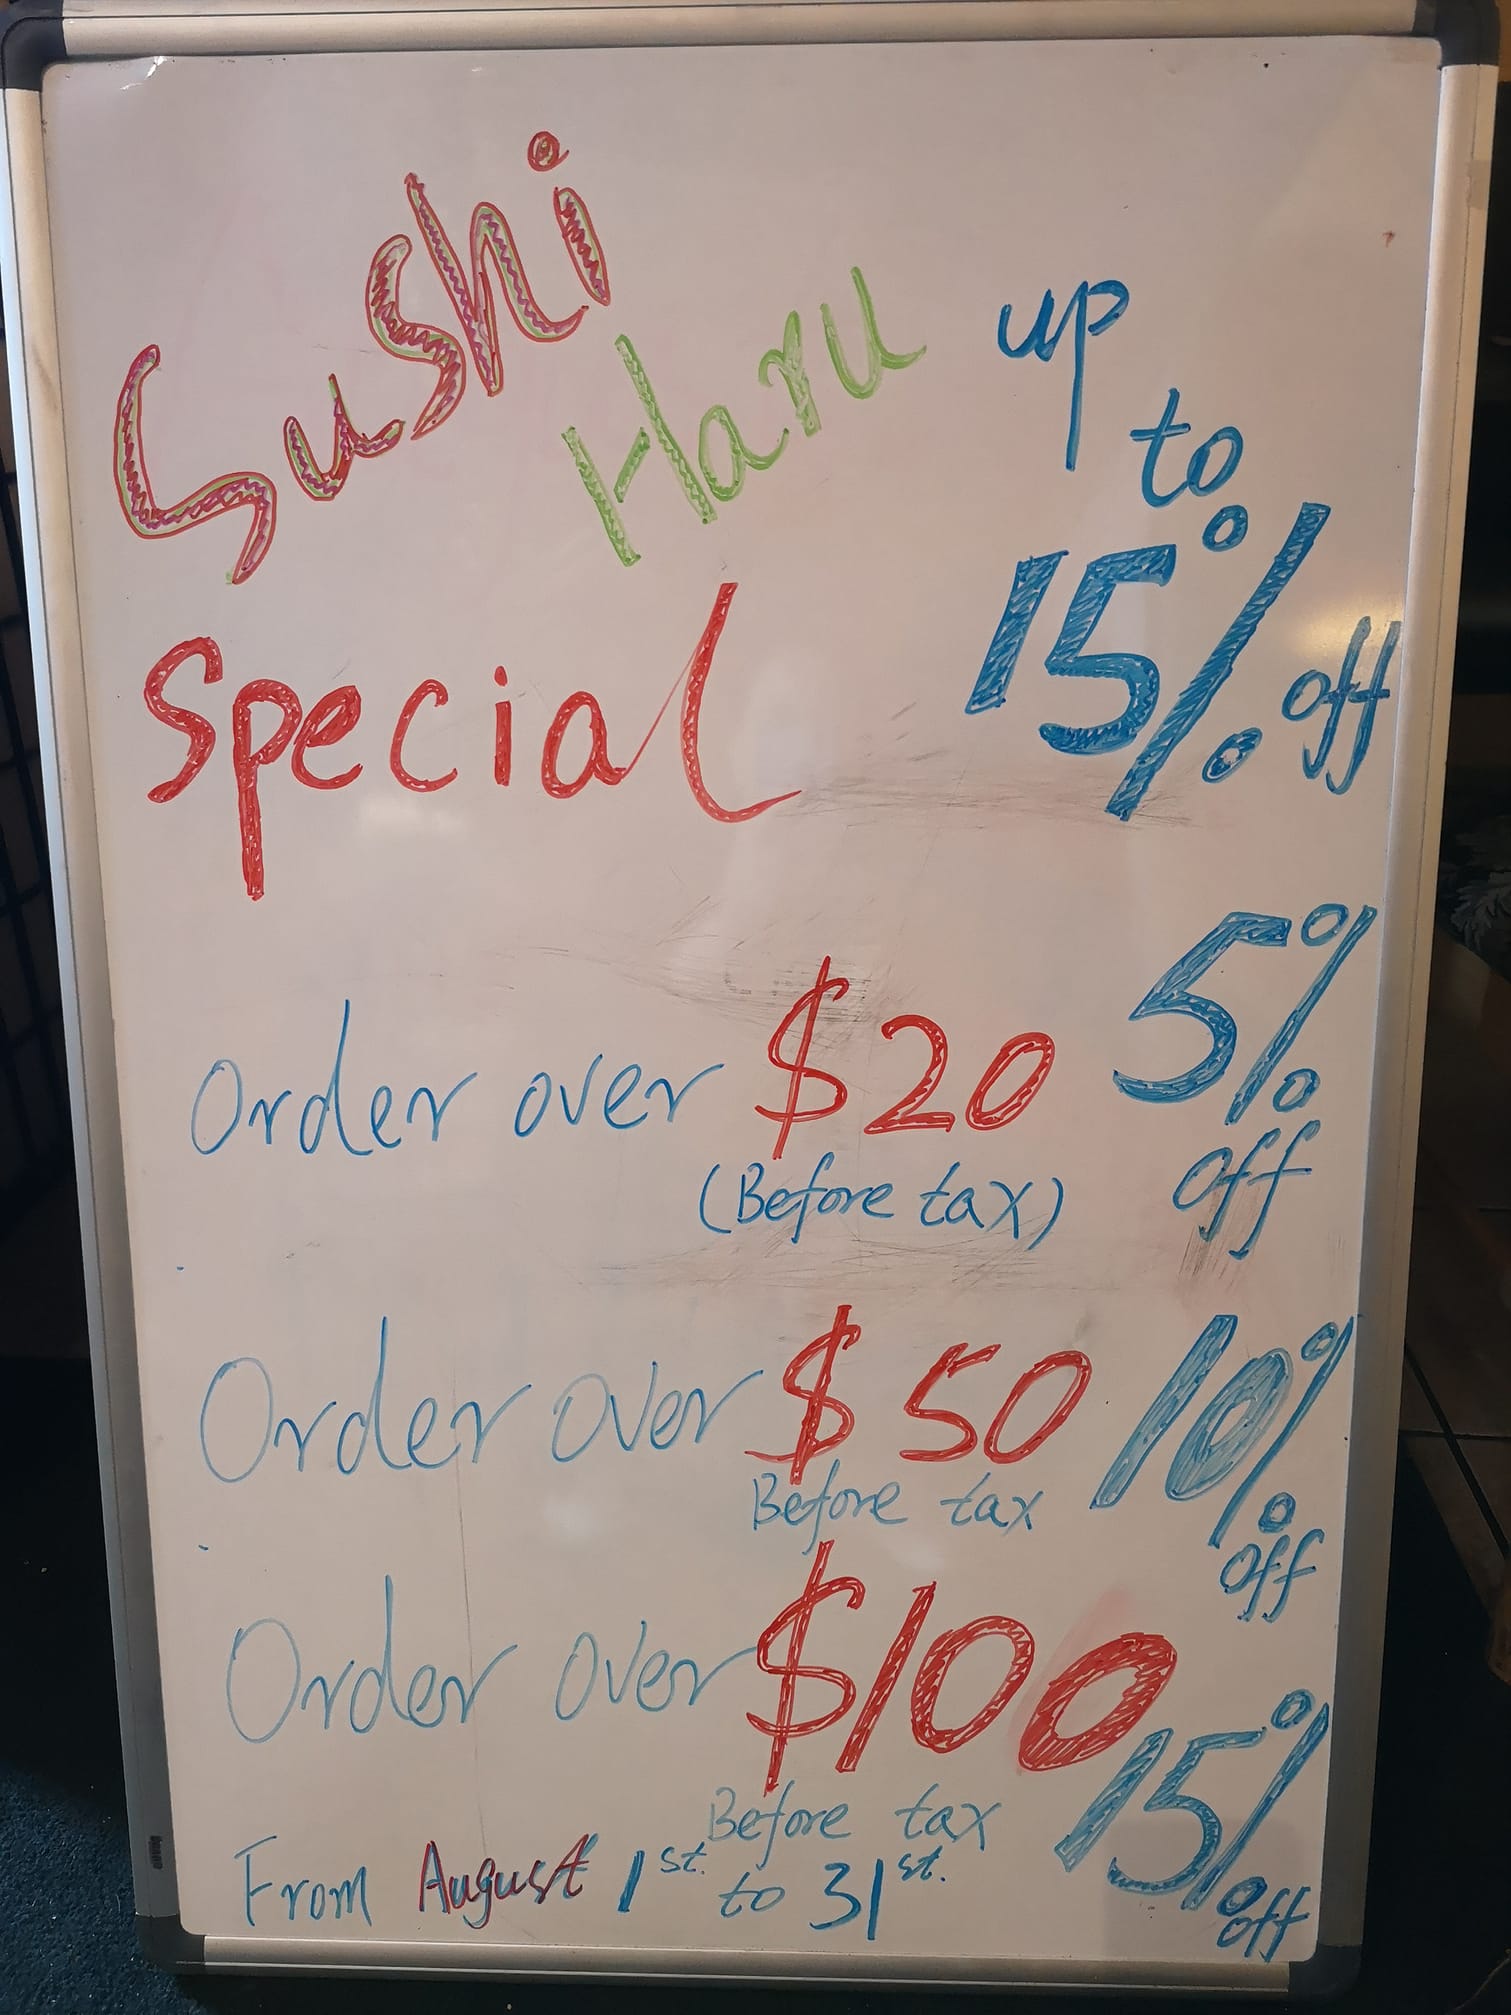 Sushi
Haru
Special
up
to
15%
off
Order over $20
(Before tax)
5%
off
Order over $50
Before tax
10%
off
Order over $100
Before tax
15%
off
From August 1st. to 31st.